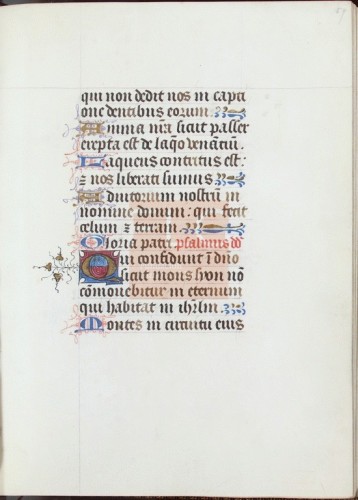 qui non dedit nos in capti
one dentibus eorum.
Anima nr̄a sicut passer
erepta est de laq̄o venantiū.
Laqueus contritus est:
⁊ nos liberati sumus
Adiutorium nostrū in
nomine domini: qui fecit
celum ⁊ terram.
Gloria patri psalmus dd
Qui confidunt ī dn̄o
sicut mons syon nō
cōmovebitur in eternum
qui habitat in ihrl̄m.
Montes in circuitu eius